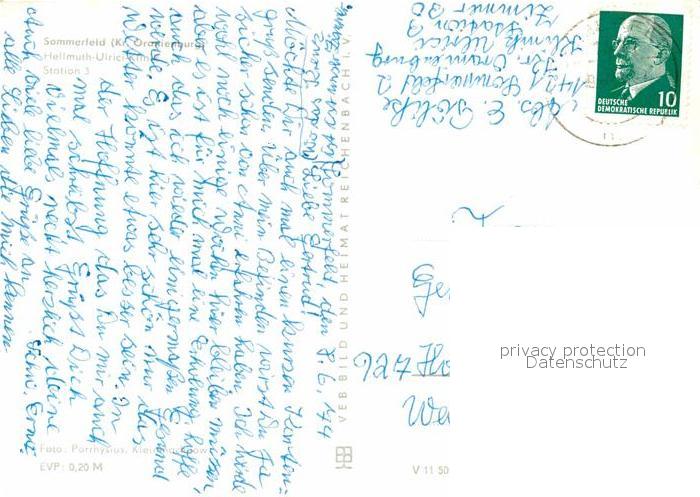 Sommerfeld (Kr. Oranienburg)
Hellmuth-Ulrici-Klinik
Station 3
Sommerfeld, den 8.6.74
Liebe Gertrud!
Möchte Dir auch mal einen kurzen Karten-
gruß senden. Über mein Befinden wirst Du ja
sicher schon von Anni erfahren haben. Ich werde
wohl noch einige Wochen hier bleiben müssen,
aber es ist für mich mal eine Erholung, hoffe
auch das ich wieder einigermaßen gesund
werde. Es ist hier sehr schön nur das
Wetter könnte etwas besser sein. In
der Hoffnung das Du mir auch
mal schreibst Grüßt Dich
vielmals recht herzlich Deine
Schw. Erna.
Auch viele liebe Grüße an
alle Lieben die mich kennen
Abs. E. Pölitze
1421 Sommerfeld 2
Kr. Oranienburg
Klinik Ulrici
Station 3
Zimmer 30
DEUTSCHE
DEMOKRATISCHE REPUBLIK
10
VEB BILD UND HEIMAT REICHENBACH I. V.
Ge
726
We
privacy protection
Datenschutz
Foto: Porrhysius, Kleinmachnow
EVP: 0,20 M
V 11 50